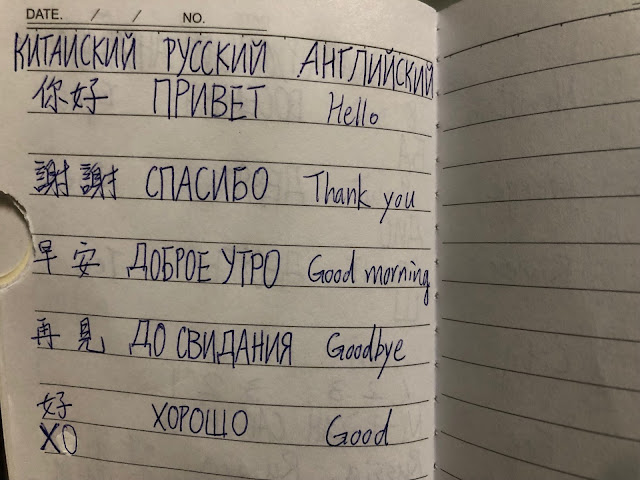 DATE. / / NO.
КИТАЙСКИЙ РУССКИЙ АНГЛИЙСКИЙ
你好 ПРИВЕТ Hello
謝謝 СПАСИБО Thank you
早安 ДОБРОЕ УТРО Good morning
再見 ДО СВИДАНИЯ Goodbye
好 ХОРОШО Good
ХО